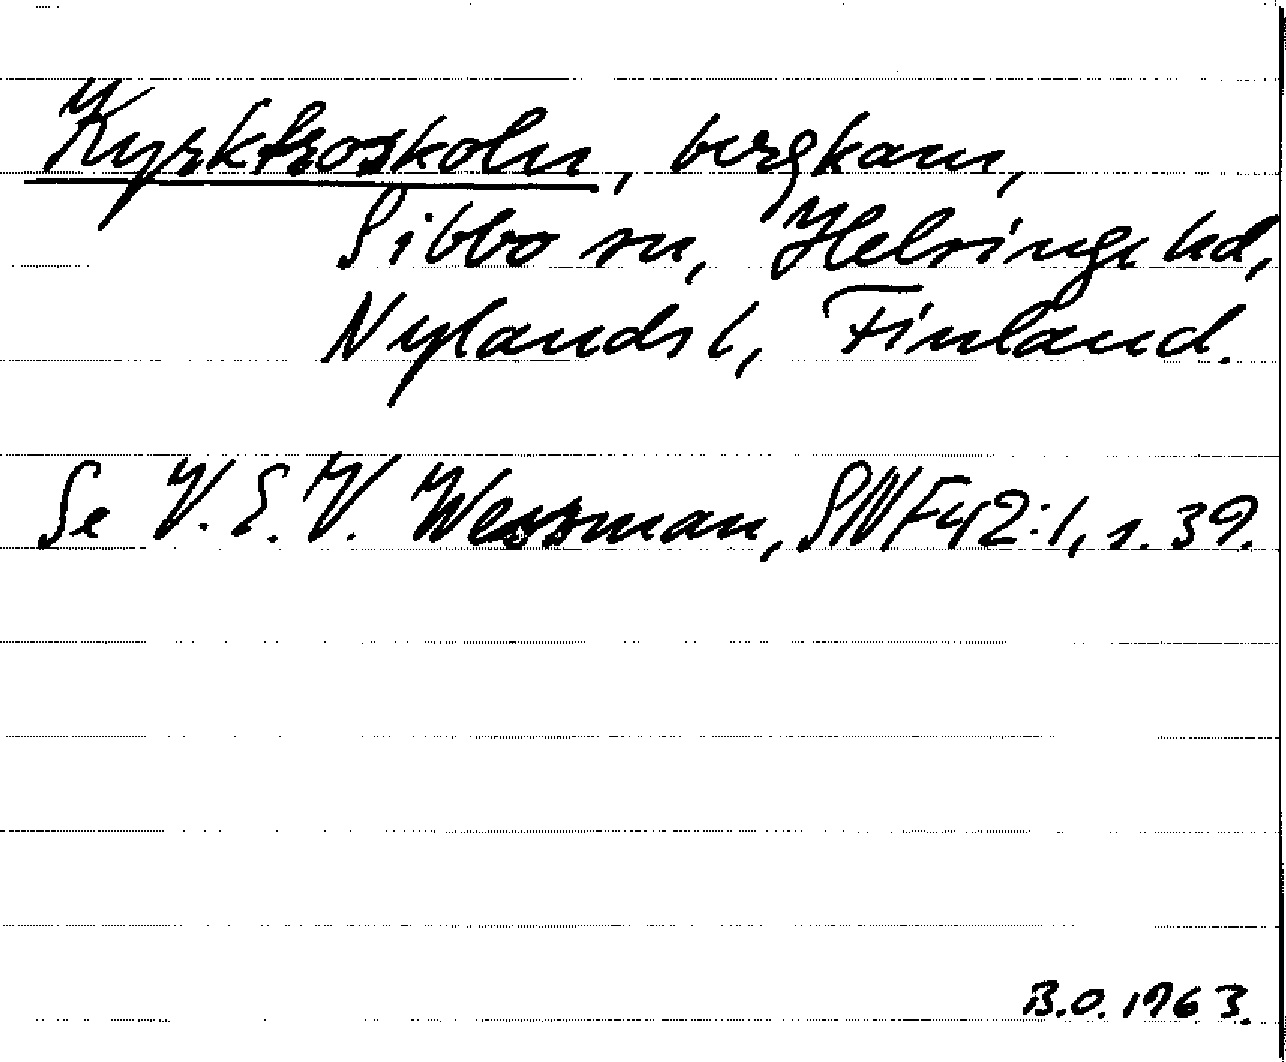 Kyrktroskoln, bergkam,
Sibbo sn, Helsinge hd,
Nylands l, Finland.
Se V. E. V. Wessman, SNF 42:1, s. 39.
B.O. 1963.